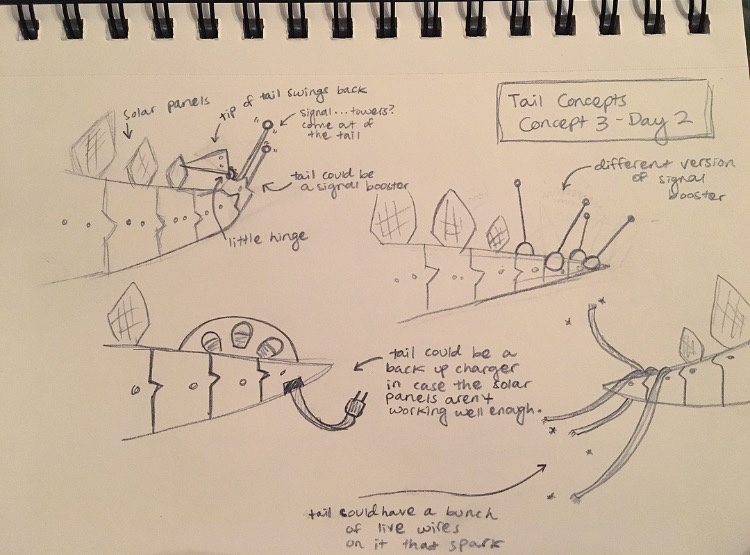 Tail Concepts
Concept 3 - Day 2
solar panels
tip of tail swings back
signal...towers?
come out of
the tail
tail could be
a signal booster
little hinge
different version
of signal
booster
tail could be a
back up charger
in case the solar
panels aren't
working well enough.
tail could have a bunch
of live wires
on it that spark